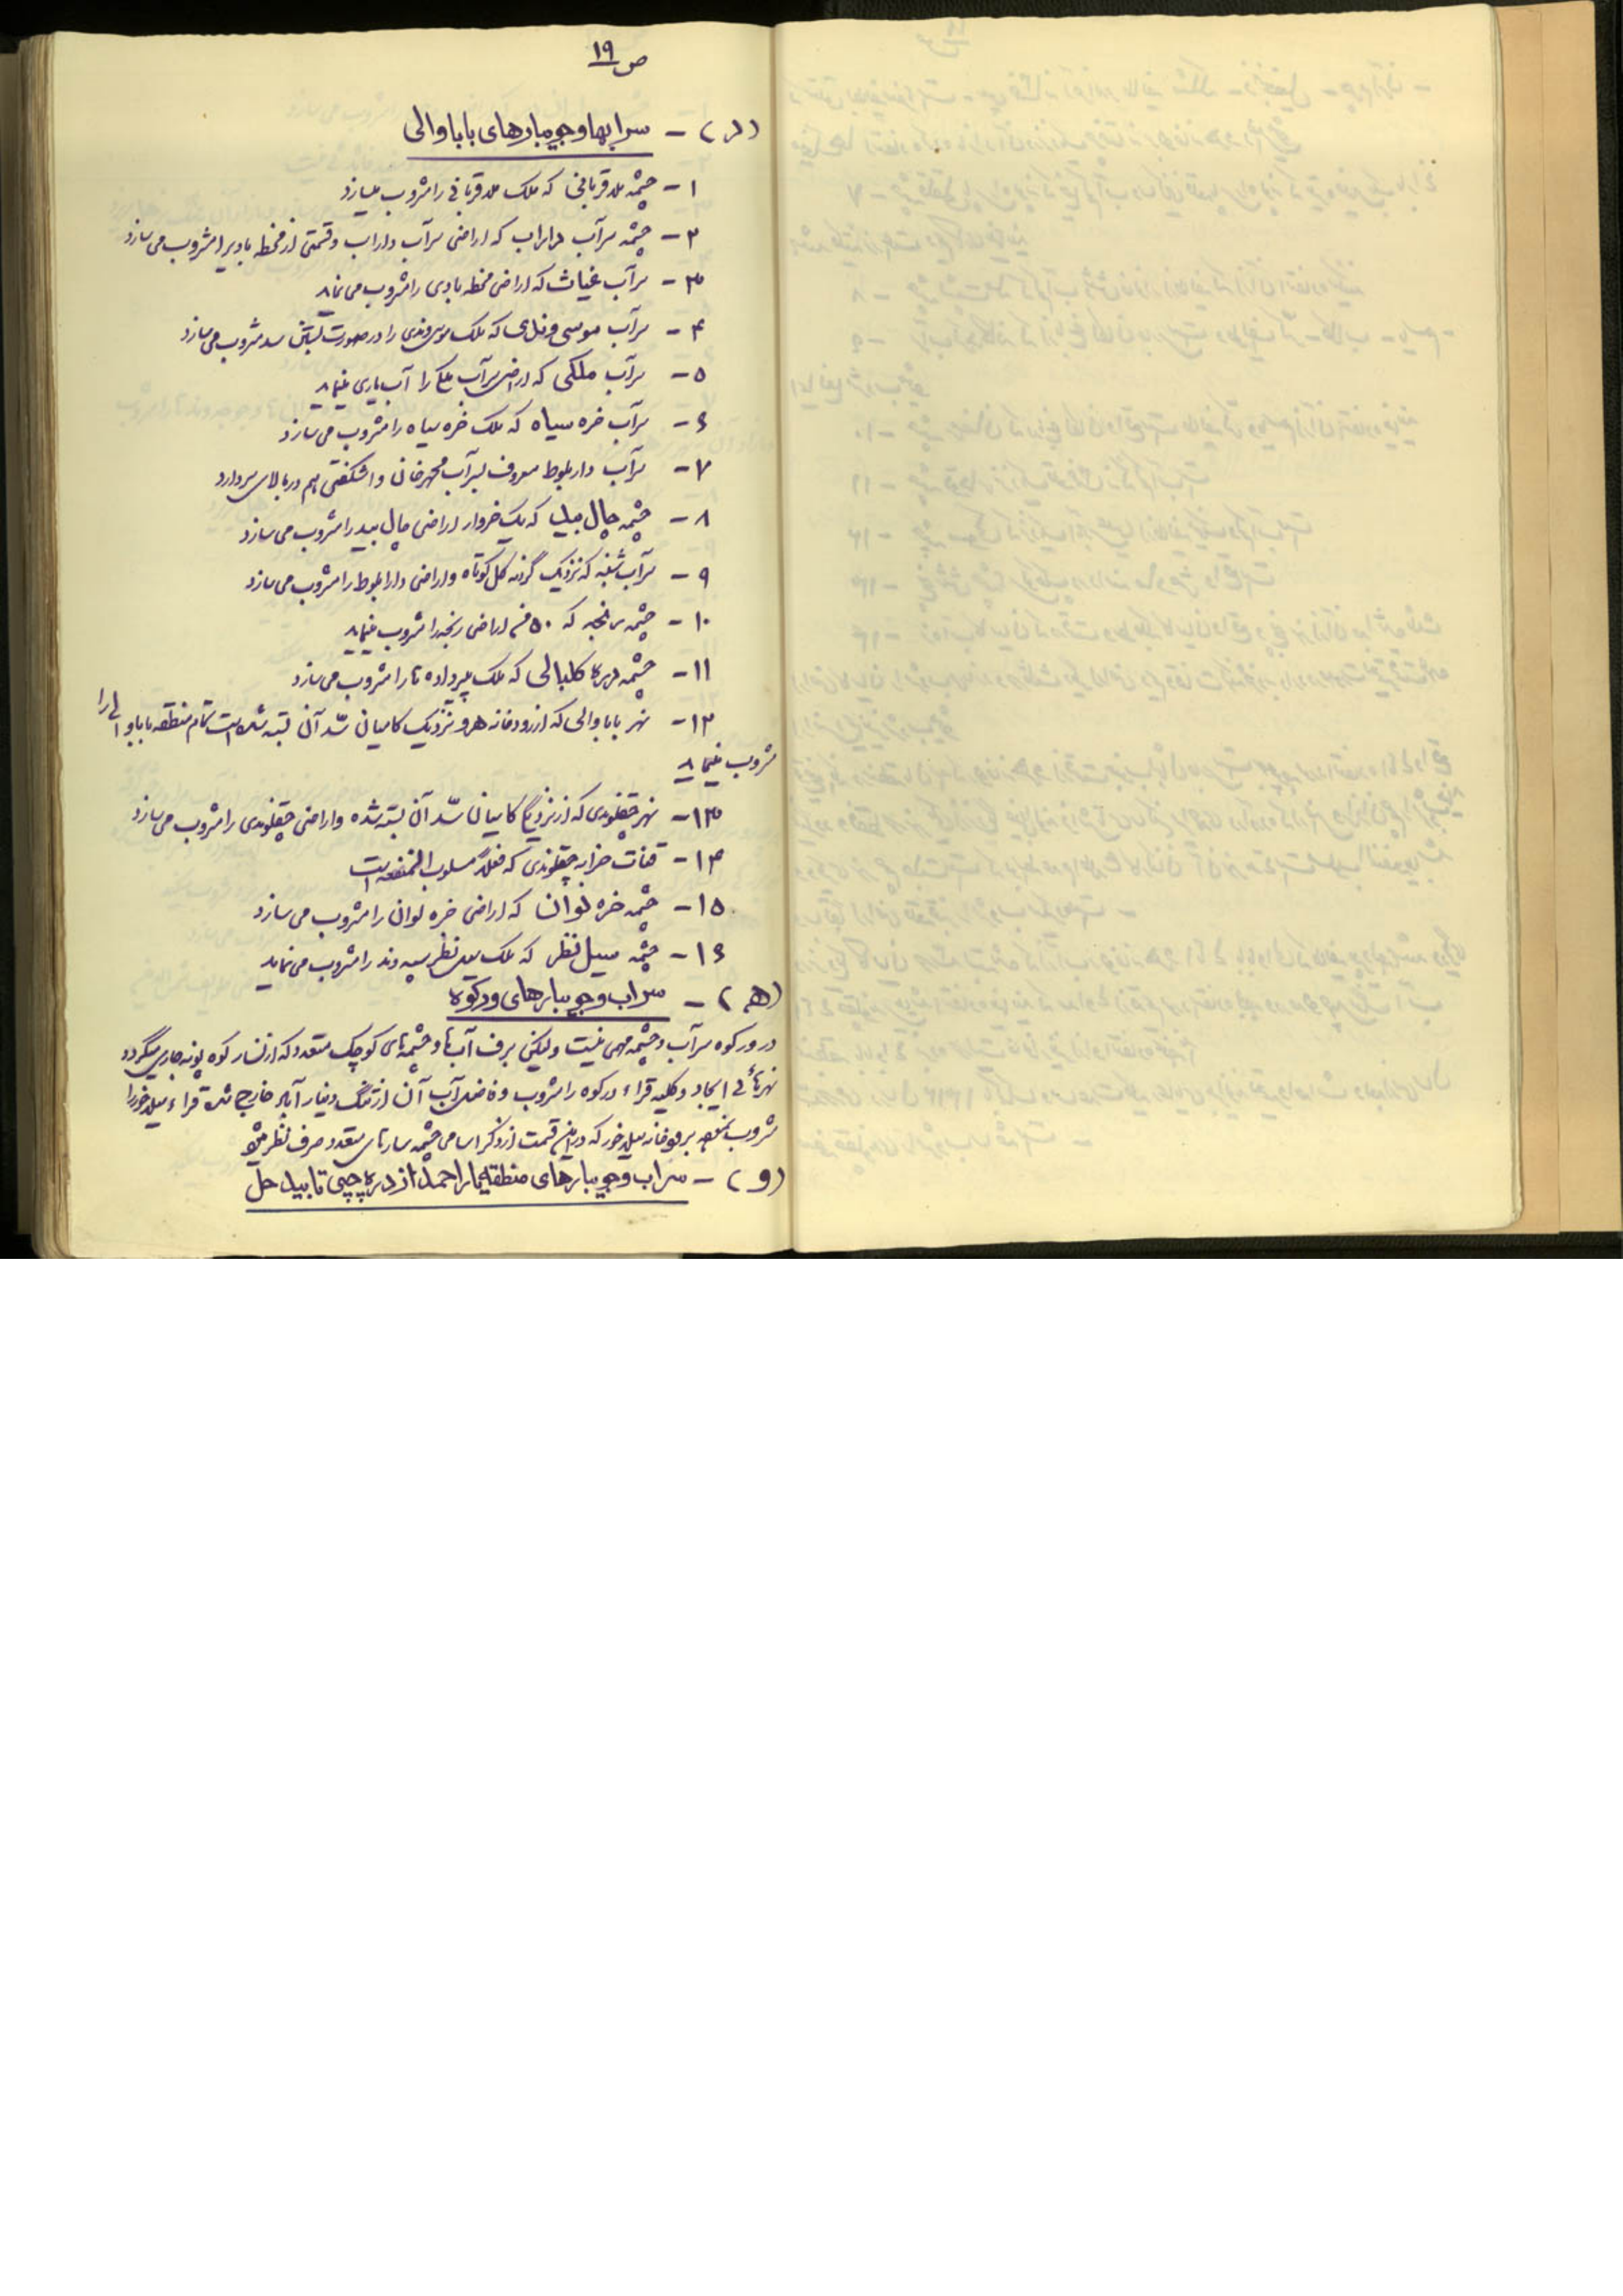 ص ۱۹
(د) - سرابها و جویبارهای باباوالی
۱- چشمه ملا قربانی که ملک ملا قربانی را مشروب میسازد
۲- چشمه سرآب داراب که اراضی سرآب داراب و قسمتی از مخطه بادیرا مشروب می سازد
۳- سرآب غیاث که اراضی مخطه بادی را مشروب می نماید
۴- سرآب موسی وندی که ملک موسی وندی را در صورت بستن سد مشروب می سازد
۵- سرآب ملکی که اراضی سرآب ملکی را آب یاری مینماید
۶- سرآب خره سیاه که ملک خره سیاه را مشروب می سازد
۷- سرآب دار بلوط معروف بسرآب مهرخان و اشکفتی هم در بالای سر دارد
۸- چشمه چال بید که یک خروار اراضی چال بید را مشروب می سازد
۹- سرآب که نزدیک گردنه کل کوتاه و اراضی دارابلوط را مشروب می سازد
۱۰- چشمه که ۵۰ من اراضی را مشروب مینماید
۱۱- چشمه کلبالی که ملک پیرداده را مشروب می سازد
۱۲- نهر باباوالی که از رودخانه هرو نزدیک کامیان سد آن بسته شده است تمام منطقه باباوالی را
مشروب مینماید
۱۳- نهر چقلوندی که از نزدیک کامیان سد آن بسته شده و اراضی چقلوندی را مشروب می سازد
۱۴- قنات خرابه چقلوندی که فعلاً مسلوب المنفعه است
۱۵- چشمه خره لوان که اراضی خره لوان را مشروب می سازد
۱۶- چشمه سید نظر که ملک سید نظر سپه وند را مشروب می نماید
(هـ) - سراب و جویبارهای ورکوه
در ورکوه سرآب و چشمه مهمی نیست ولیکن برف آبها و چشمه های کوچک متعدد که از نسار کوه پونه جاری میگردد
نهرهائی ایجاد و کلیه قراء ورکوه را مشروب و فاضل آب آن از تنگ دینار آباد خارج شده قراء سیلاخور را
مشروب سیلاخور که در این قسمت از ذکر اسامی چشمه سارهای متعدد صرف نظر میشود
(و) - سراب و جویبارهای منطقه یاراحمد از دره چپی تا بیدهل